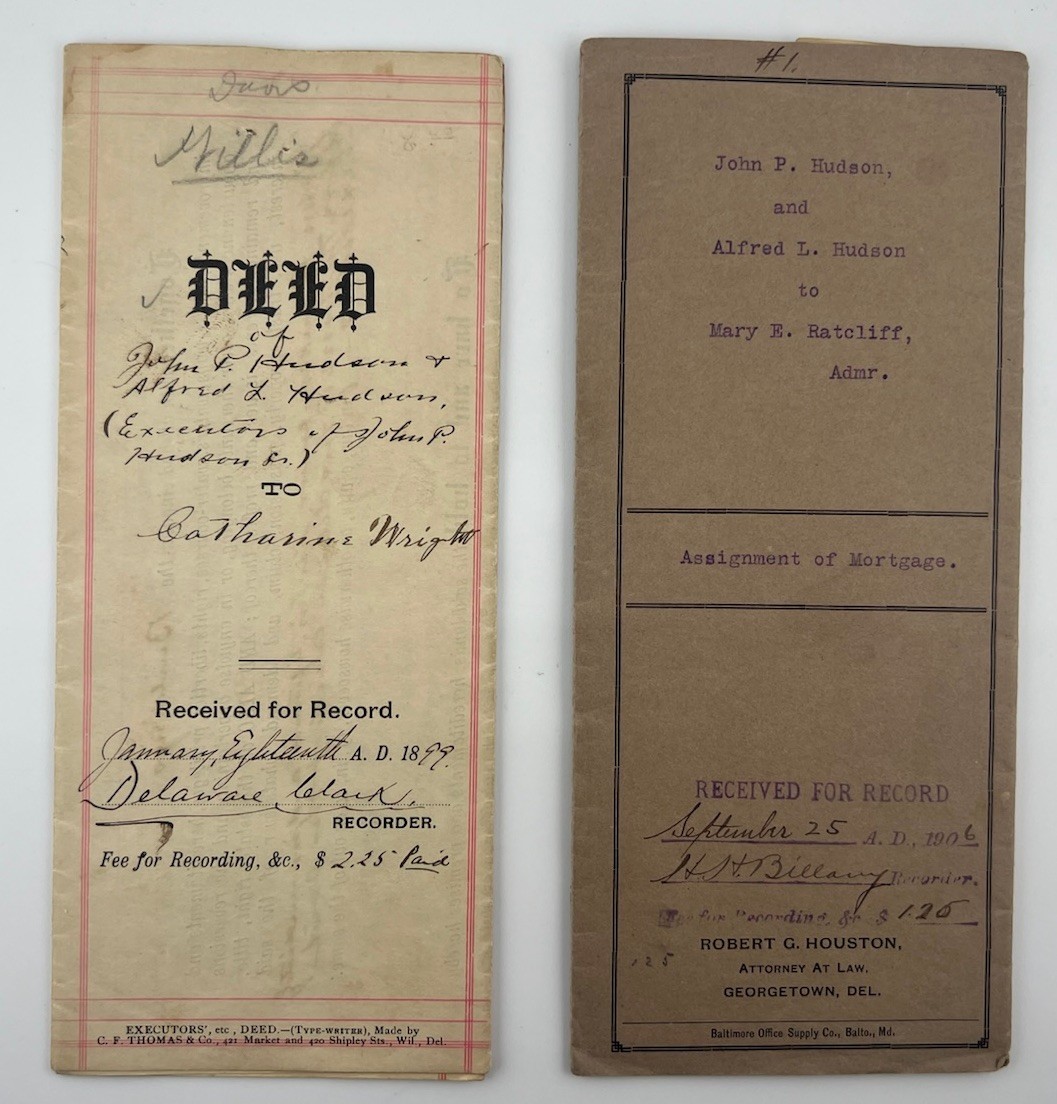 Davis
Willis
DEED
of
John P. Hudson &
Alfred L. Hudson,
(Executors of John P.
Hudson Sr.)
TO
Catharine Wright
Received for Record.
January, Eighteenth A. D. 1899.
Delaware Clark,
RECORDER.
Fee for Recording, &c., $ 2.25 Paid
EXECUTORS', etc., DEED.—(TYPE-WRITER), Made by
C. F. THOMAS & Co., 421 Market and 420 Shipley Sts., Wil., Del.
#1.
John P. Hudson,
and
Alfred L. Hudson
to
Mary E. Ratcliff,
Admr.
Assignment of Mortgage.
RECEIVED FOR RECORD
September 25 A. D., 1906
H. H. Billany Recorder.
Fee for Recording, &c $ 1.25
ROBERT G. HOUSTON,
ATTORNEY AT LAW,
GEORGETOWN, DEL.
Baltimore Office Supply Co., Balto., Md.